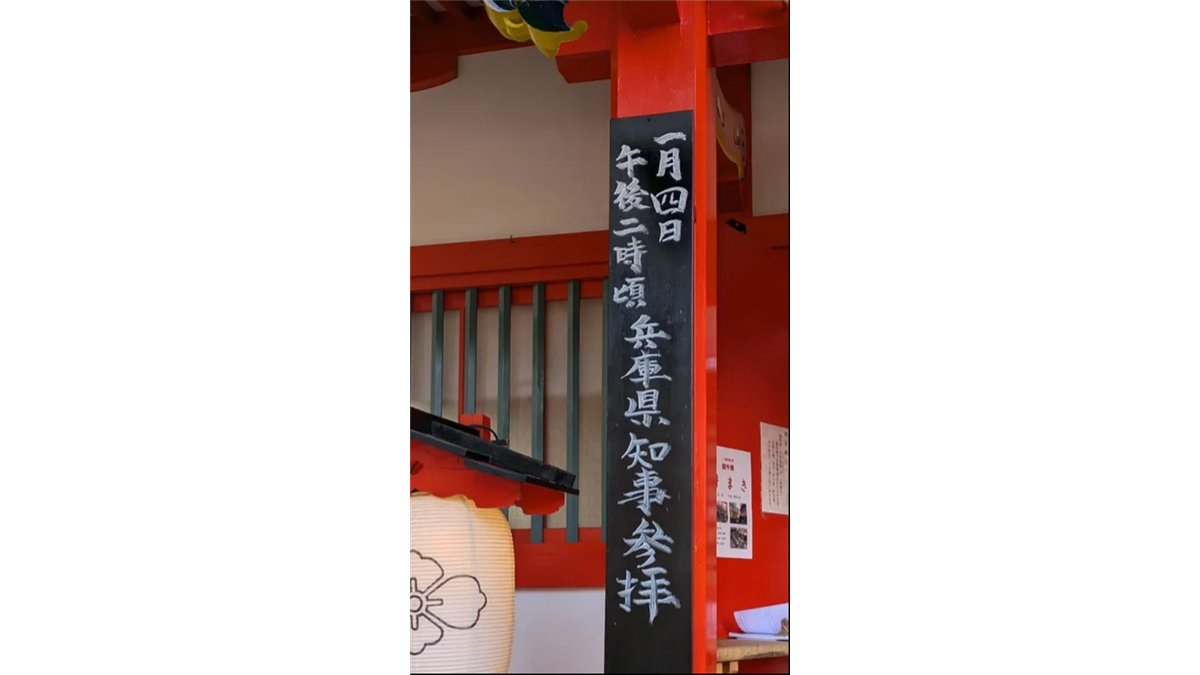 一月四日
午後二時頃
兵庫県知事参拝
まき